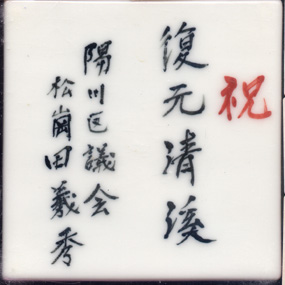 祝
復元清溪
陽川区議会
松崗田羲秀